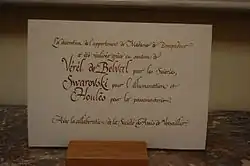 La décoration de l'appartement de Madame de Pompadour
a été réalisée grâce au soutien de
Verel de Belval pour les Soieries,
Swarovski pour l'illumination, et
Houlès pour la passementerie.
Avec la collaboration de la Société des Amis de Versailles